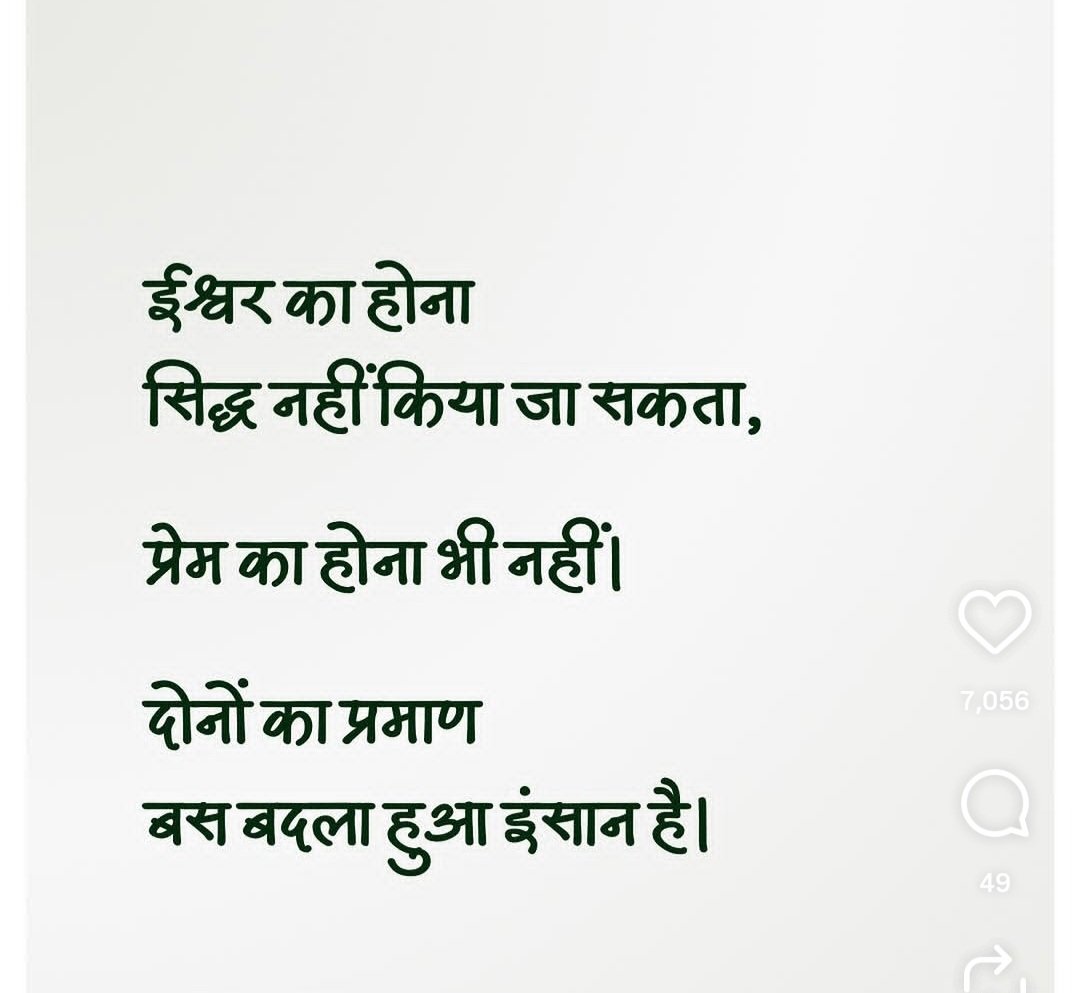 ईश्वर का होना
सिद्ध नहीं किया जा सकता,
प्रेम का होना भी नहीं।
दोनों का प्रमाण
बस बदला हुआ इंसान है।
7,056
49